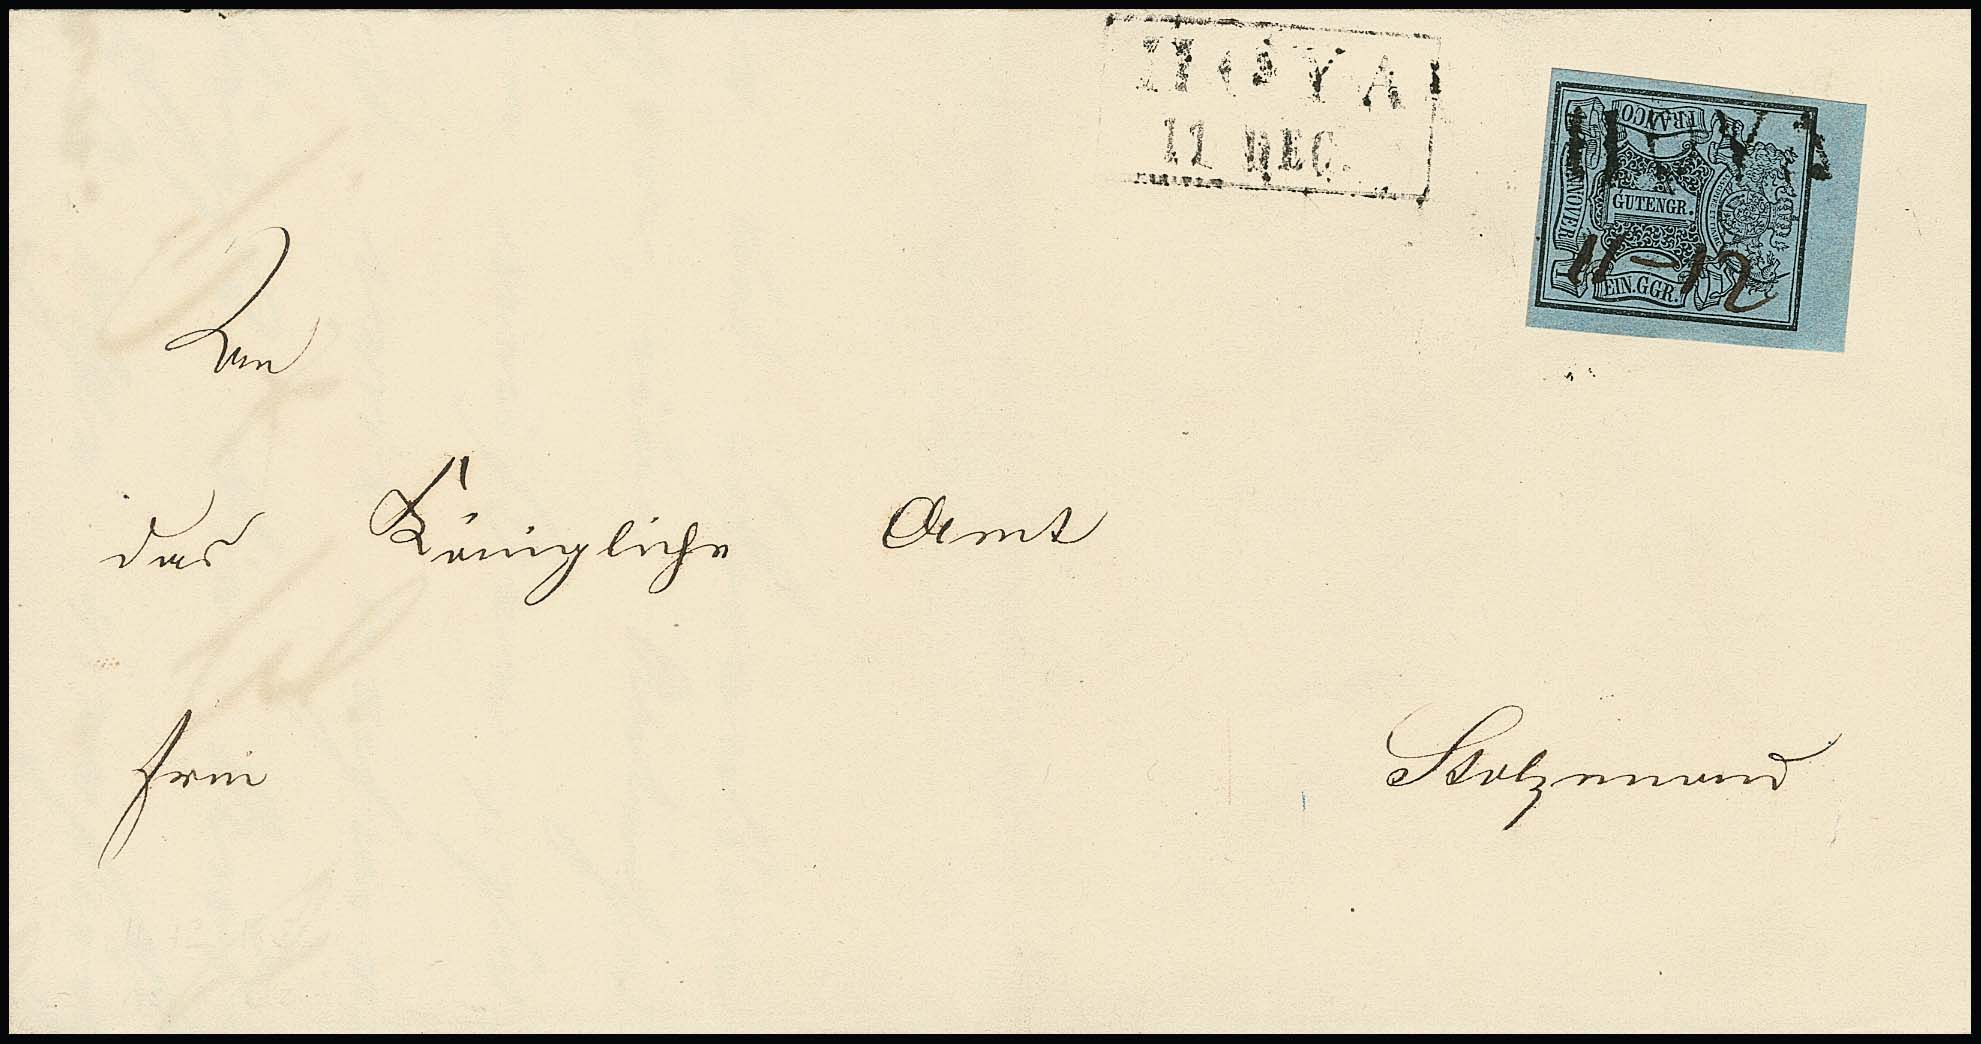 HOYA
11 DEC.
FRANCO
HANNOVER
GUTENGR.
1
EIN.GGR.
11-12
An
das Königliche Amt
frei
Stolzenau